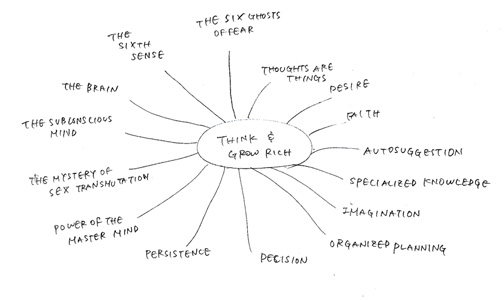 THE SIX GHOSTS
OF FEAR
THOUGHTS ARE
THINGS
DESIRE
FAITH
AUTOSUGGESTION
SPECIALIZED KNOWLEDGE
IMAGINATION
ORGANIZED PLANNING
DECISION
PERSISTENCE
POWER OF THE
MASTER MIND
THE MYSTERY OF
SEX TRANSMUTATION
THE SUBCONSCIOUS
MIND
THE BRAIN
THE
SIXTH
SENSE
THINK &
GROW RICH